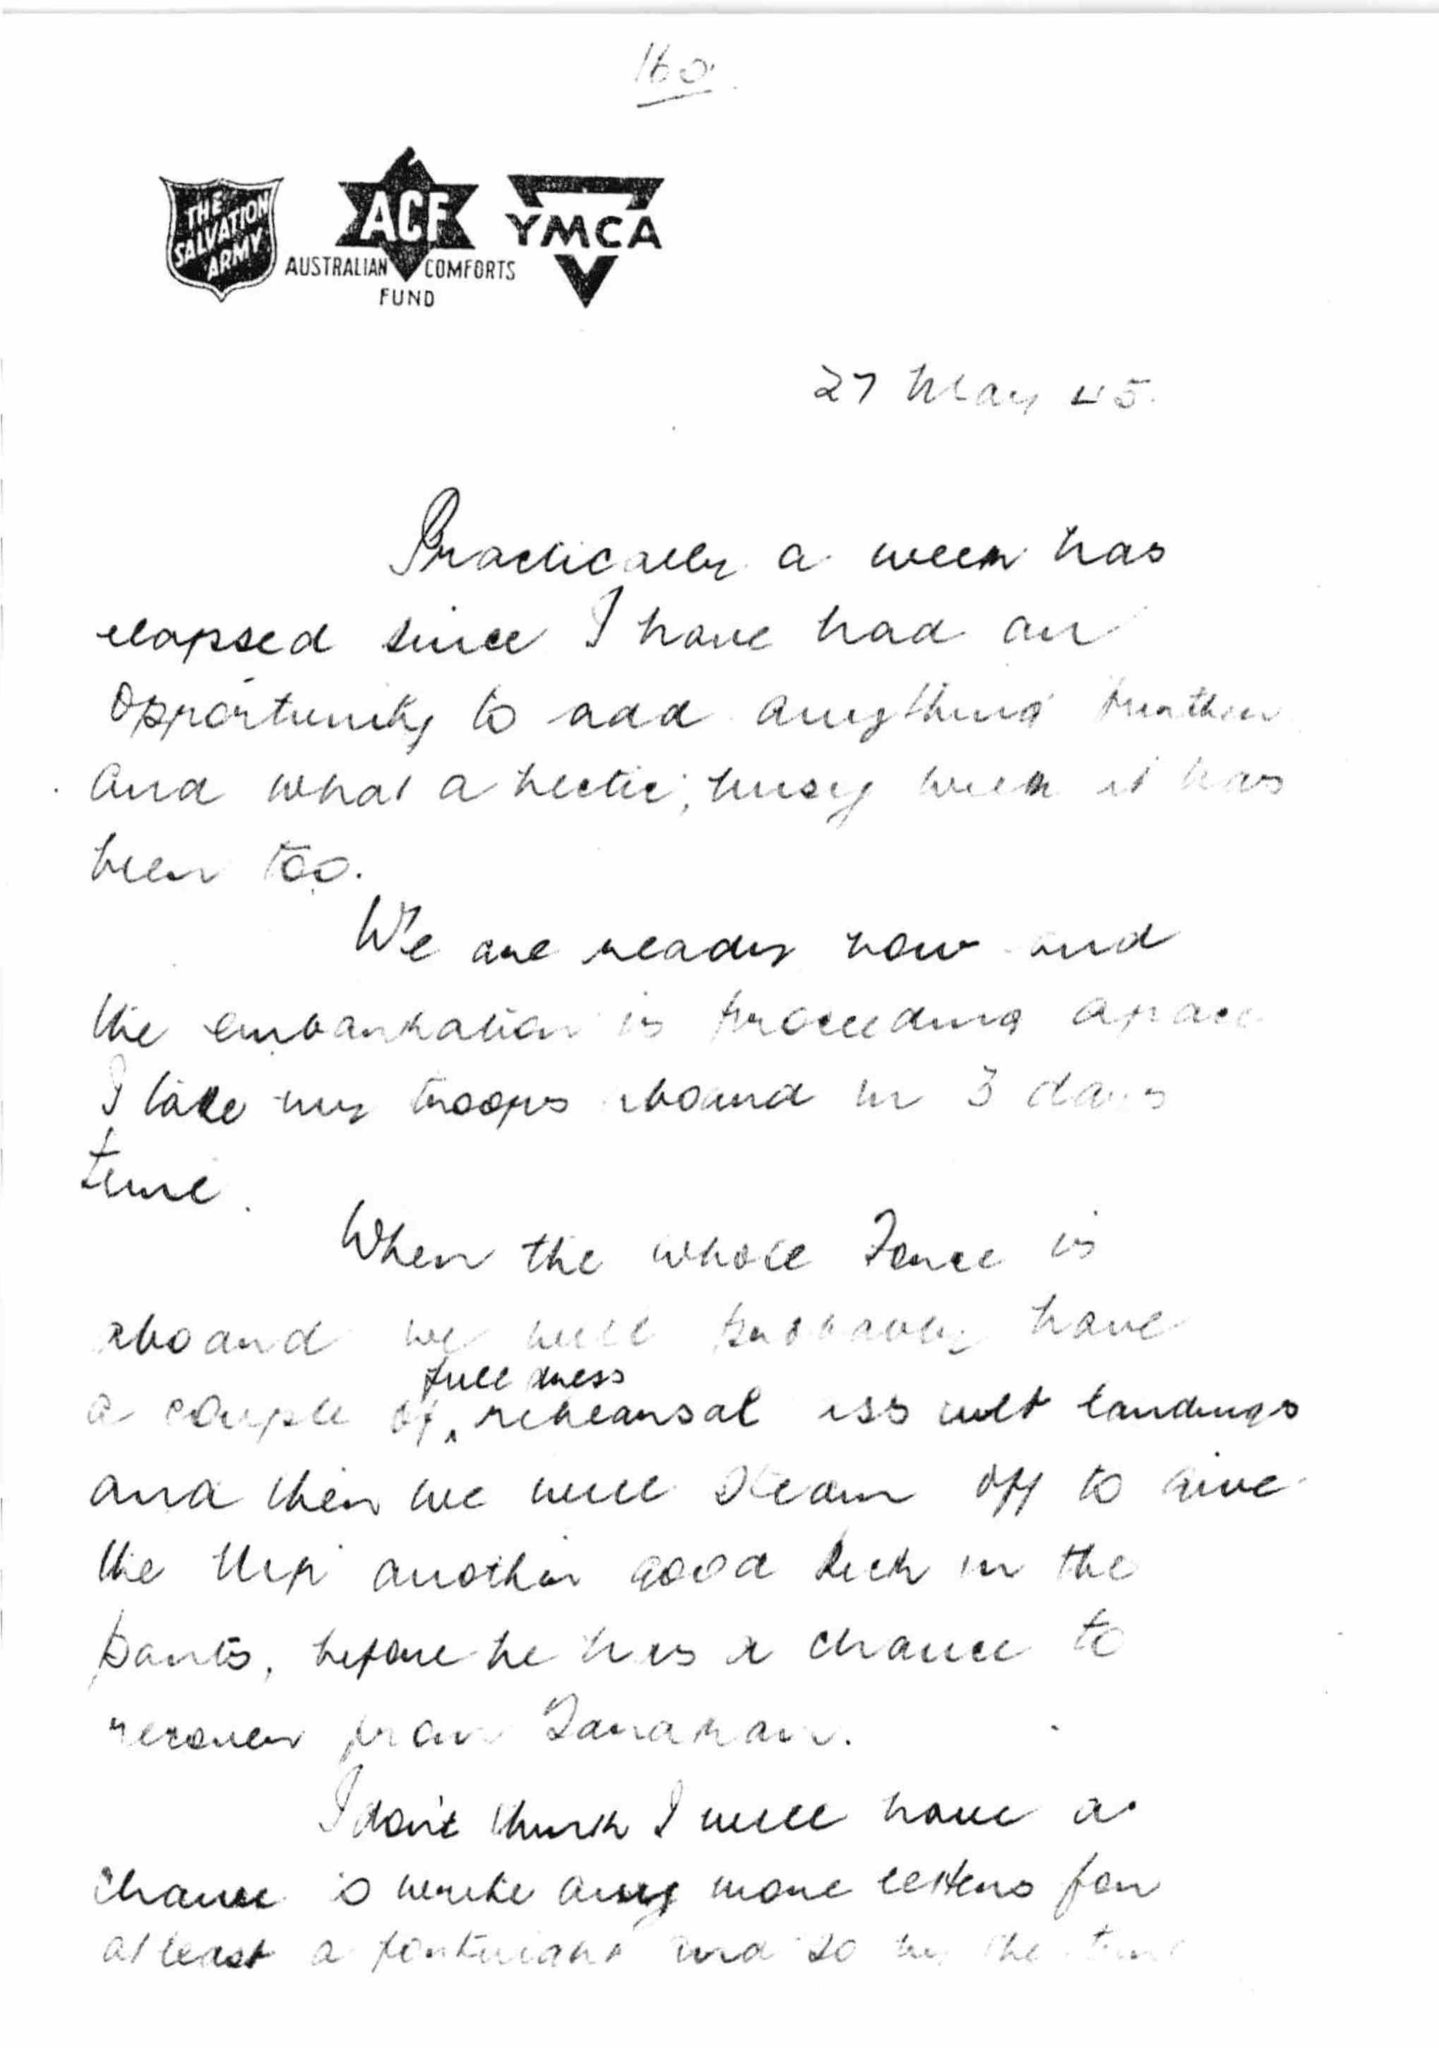 160.
THE
SALVATION
ARMY
ACF
AUSTRALIAN COMFORTS
FUND
YMCA
27 May 45.
Practically a week has
elapsed since I have had an
opportunity to add anything further
And what a hectic, busy week it has
been too.
We are ready now and
the embarkation is proceeding apace
I take my troops aboard in 3 days
time.
When the whole Force is
aboard we will probably have
full dress
a couple of ‸ rehearsal assault landings
and then we will steam off to give
the Nip another good kick in the
pants, before he has a chance to
recover from Tarakan.
I don't think I will have a
chance to write any more letters for
at least a fortnight and so by the time